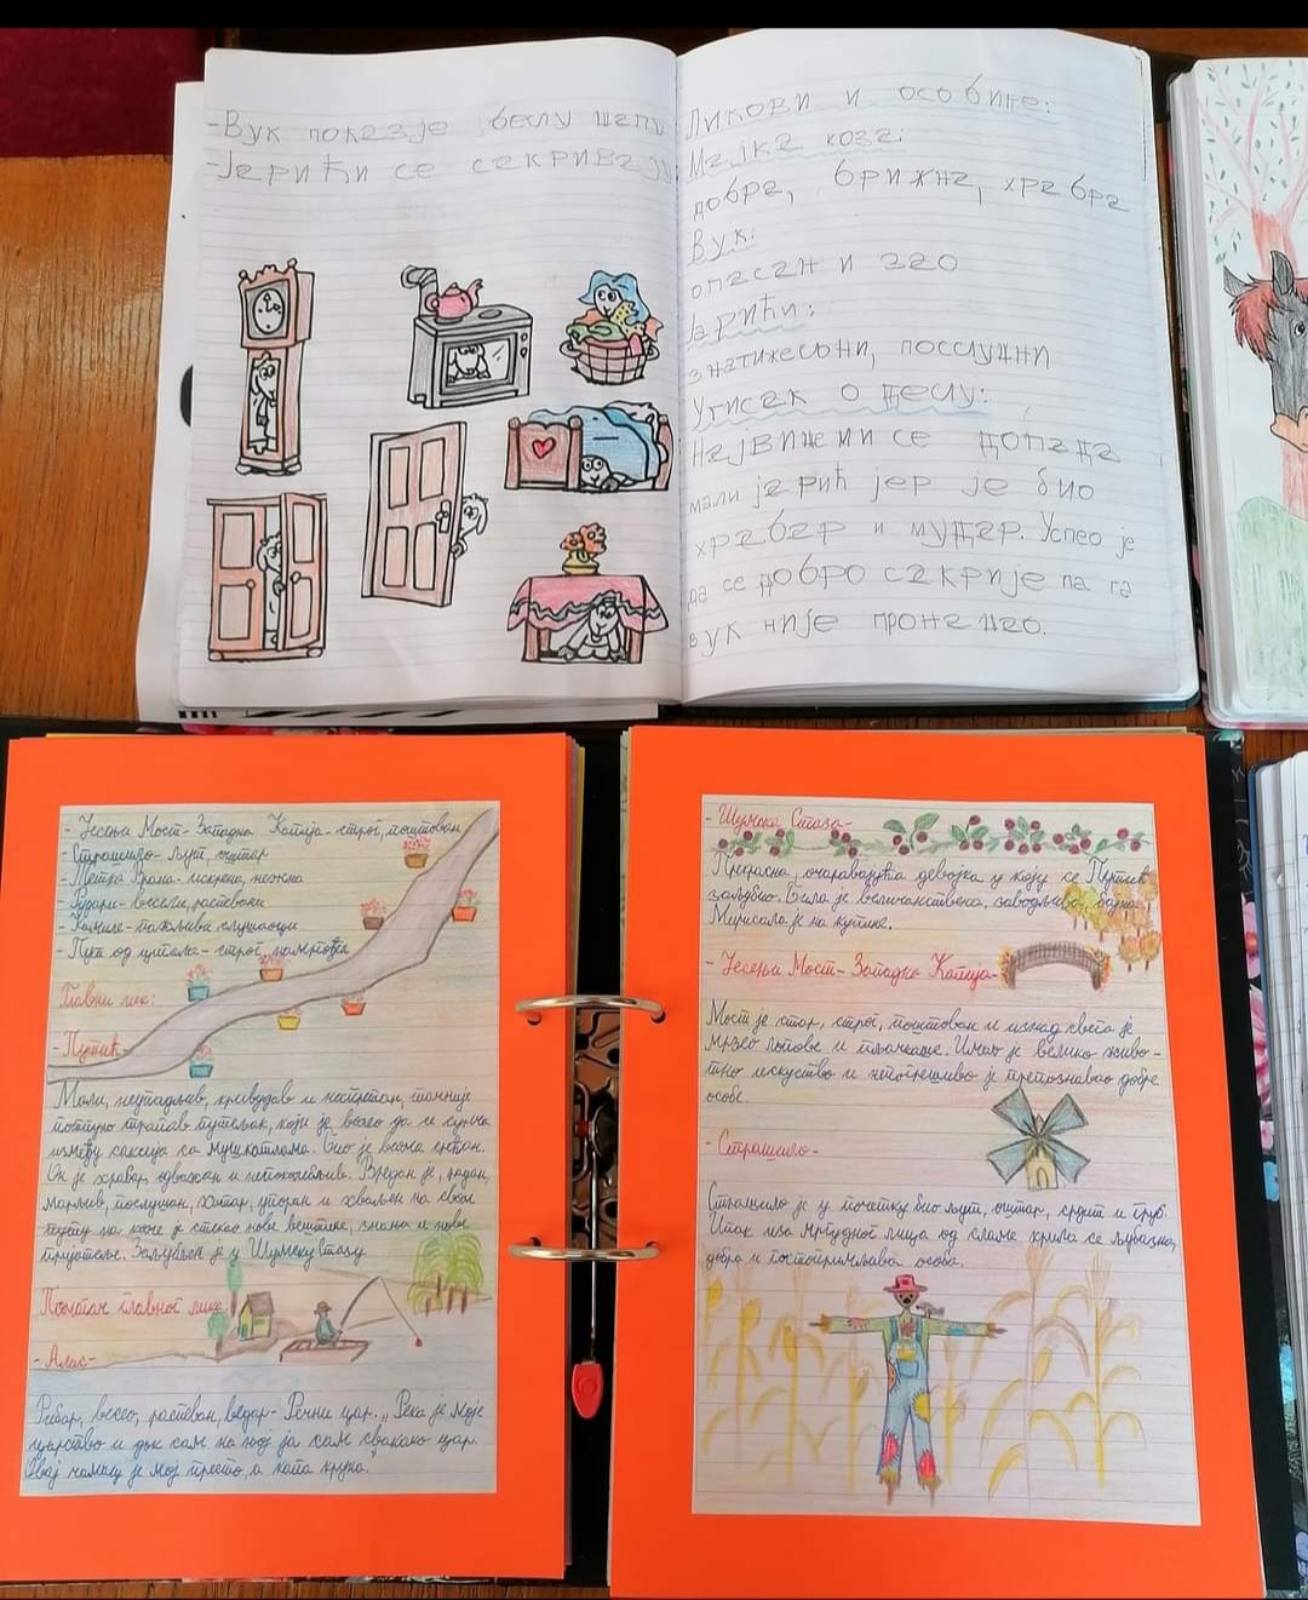 -Вук показје белу шапу
-Јарићи се сакривају
Ликови и особине:
Мајка коза:
добра, брижна, храбра
Вук:
опасан и зао
Јарићи:
знатижељни, послушни
Утисак о делу:
Највише ми се допада
мали јарић јер је био
храбар и мудар. Успео је
да се добро сакрије па га
вук није пронашао.
- Јесењи Мост- Западна Капија- строг, поштован
- Страшило- љут, оштар
- Тетка Врана- искрена, нежна
- Рудари- весели, распевани
- Камиле- пажљиви слушаоци
- Пут од цигала- строг, намргођен
Главни лик:
- Путић-
Мали, неугладљив, кривудав и неспретан, тачније
потпуно трапав путељак, који је волео да се сунча
између саксија са мушкатлама. Био је веома срећан.
Он је храбар, одважан и непоколебљив. Вредан је,
марљив, послушан, хитар, упоран и хваљен на свом
путу на коме је стекао нове вештине, знања и нове
пријатеље. Заљубљен је у Шумску Стазу.
Помагач главног лика:
- Алас-
Рибар, весео, распеван, ведар- Речни цар. „Река је моје
царство и док сам на њој ја сам свакако цар.
Овај чамац је мој престо, а капа круна."
- Шумска Стаза-
Прекрасна, очаравајућа девојка у коју се Путић
заљубио. Била је величанствена, заводљива, бајна.
Мирисала је на купине.
- Јесењи Мост- Западна Капија-
Мост је стар, строг, поштован и изнад свега је
мрзео лопове и пљачкаше. Имао је велико живо-
тно искуство и непогрешиво је препознавао добре
особе.
- Страшило-
Страшило је у почетку био љут, оштар, срдит и груб.
Ипак иза мргудног лица од сламе крила се љубазна,
добра и гостопримљива особа.